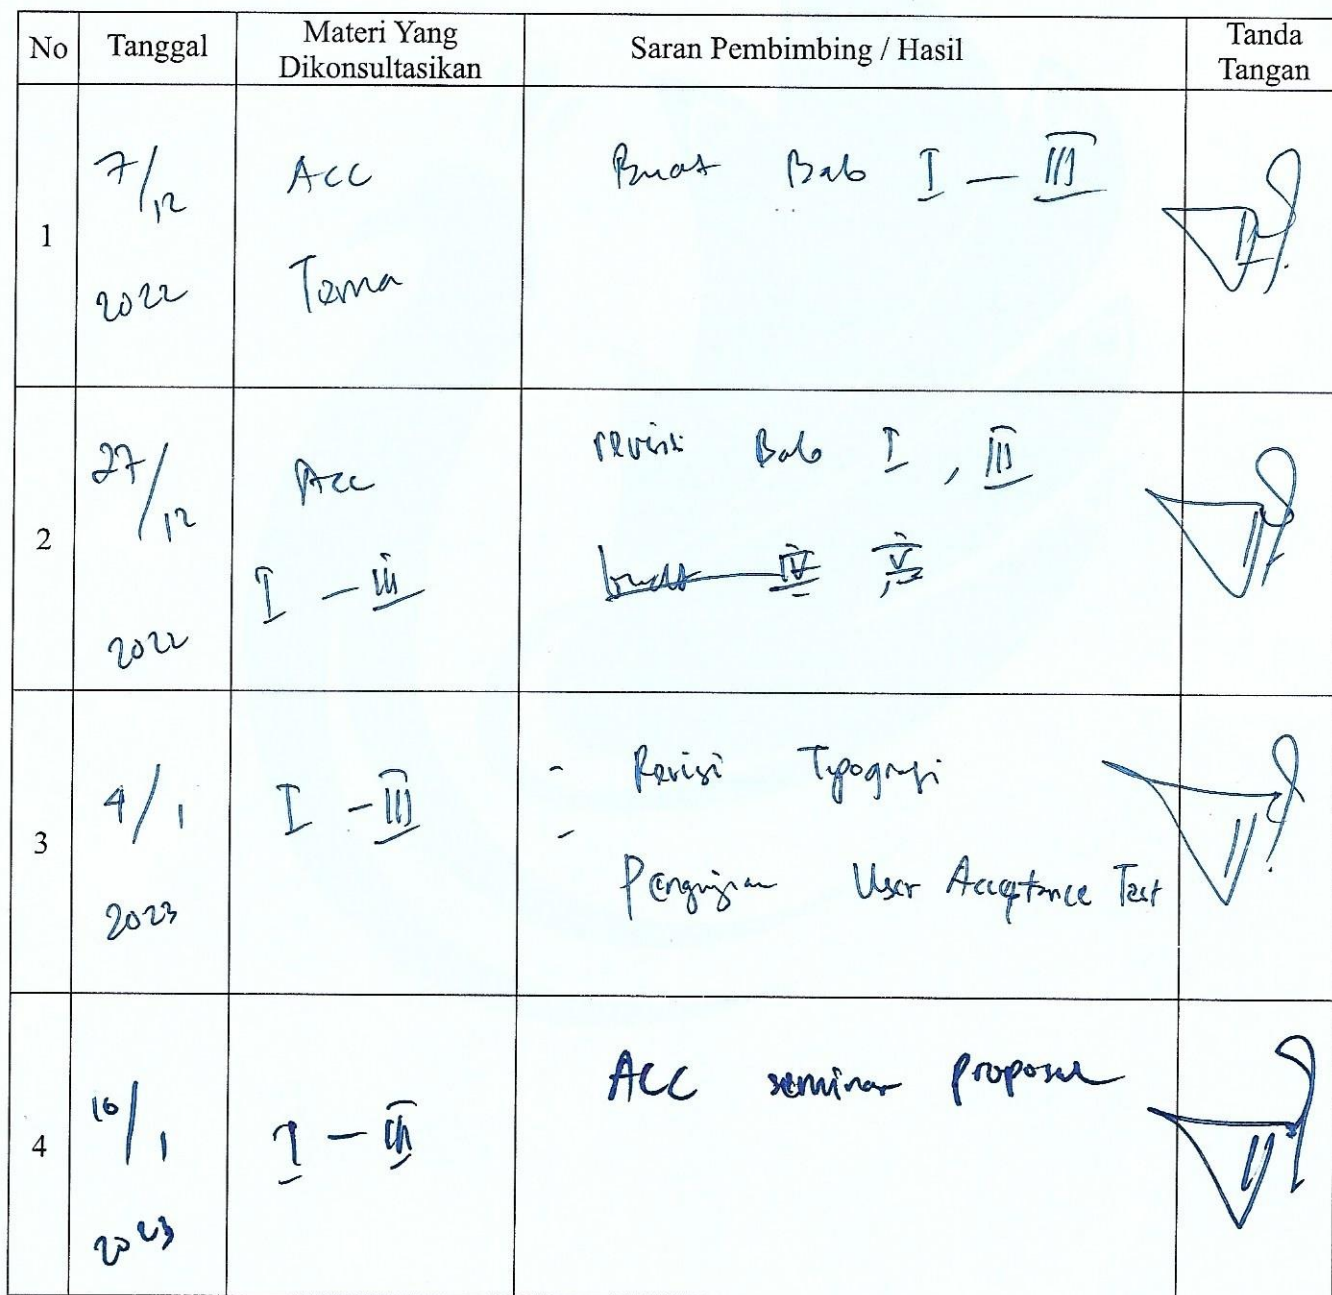 No Tanggal Materi Yang Dikonsultasikan Saran Pembimbing / Hasil Tanda Tangan
1 7/12 2022 Acc Tema Buat Bab I - III
2 27/12 2022 Acc I - III revisi Bab I , III
buat IV, V
3 4/1 2023 I - III - Revisi Tipografi
- Pengujian User Acceptance Test
4 16/1 2023 I - III ACC seminar proposal